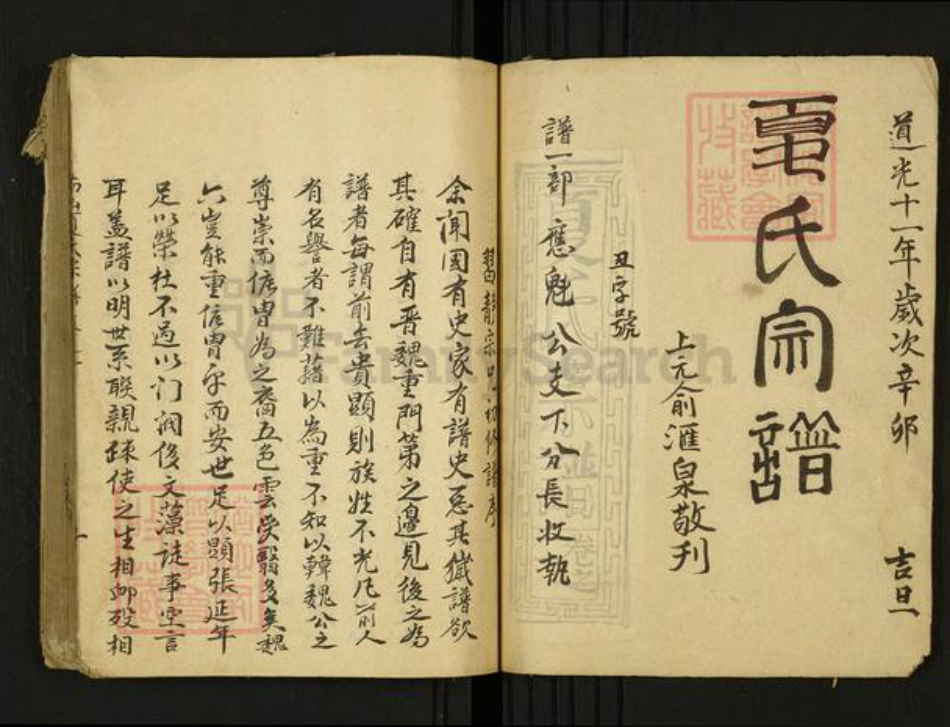 道光十一年歲次辛卯 吉旦
夏氏宗譜
上元俞滙泉敬刋
丑字號
譜一部應魁公支下分長收執
余聞國有史家有譜史惡其穢譜欲
其確自有晋魏重門第之邊見後之為
譜者每謂前去貴顯則族姓不光凡前人
有名譽者不難藉以為重不知以韓魏公之
尊崇而信冑為之裔五色雲
六豈能重信冑乎而安世足以顯張延年
足以榮杜不過以门润後文藻徒事空言
耳盖譜以明世系聯親疎使之生相卹殁相
FamilySearch